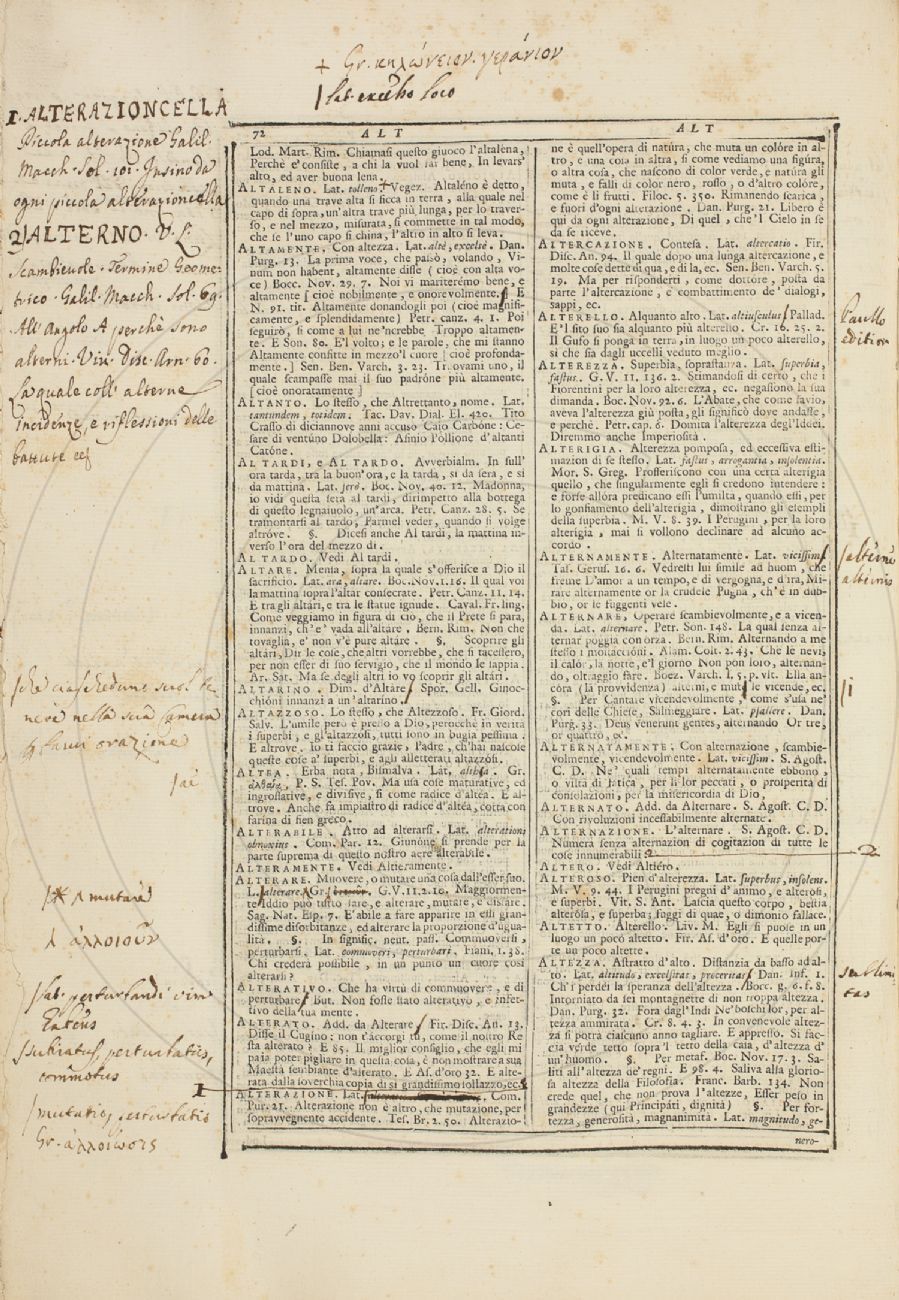 + Gr. κηλώνειον. γεράνιον
Lat. excelso loco
1. ALTERAZIONCELLA
Piccola alterazione Galil.
Macch. Sol. 101. Insino da
ogni piccola alterazioncella
2 ALTERNO. V. L.
Scambievole. Termine Geome-
trico. Galil. Macch. Sol. 69.
All' Angolo A perchè sono
alterni. Viv. Disc. Arn. 60.
La quale coll' alterne
Incidenze, e riflessioni delle
battute ec
che ciascheduno
nere nella sua camera
orazione
ai
mutare
ἀλλοιοῦν
Lat. perturbandi vim
habens
perturbatus,
commotus
1
mutatio, perturbatio
Gr. ἀλλοίωσις
72 ALT
Lod. Mart. Rim. Chiamasi questo giuoco l'altalena,
Perchè e' consiste, a chi la vuol far bene, In levars'
alto, ed aver buona lena.
ALTALENO. Lat. tolleno. Vegez. Altaléno è detto,
quando una trave alta si ficca in terra, alla quale nel
capo di sopra, un'altra trave più lunga, per lo traver-
so, e nel mezzo, misurata, si commette in tal modo,
che se l'uno capo si china, l'altro in alto si leva.
ALTAMENTE. Con altezza. Lat. altè, excelsè. Dan.
Purg. 13. La prima voce, che passò, volando, Vi-
num non habent, altamente disse (cioè con alta vo-
ce) Bocc. Nov. 29. 7. Noi vi mariterémo bene, e
altamente [cioè nobilmente, e onorevolmente. E
N. 91. tit. Altamente donandogli poi (cioè magnifi-
camente, e splendidamente) Petr. canz. 4. 1. Poi
seguirò, sì come a lui ne'ncrebbe Troppo altamen-
te. E Son. 80. E'l volto; e le parole, che mi stanno
Altamente confitte in mezzo'l cuore [cioè profonda-
mente.] Sen. Ben. Varch. 3. 23. Trovami uno, il
quale scampasse mai il suo padróne più altamente.
[cioè onoratamente]
ALTANTO. Lo stesso, che Altrettanto, nome. Lat.
tantundem, totidem. Tac. Dav. Dial. El. 420. Tito
Crasso di diciannove anni accusò Caio Carbóne: Ce-
sare di ventúno Dolobella: Asinio Póllione d'altanti
Catóne.
AL TARDI, e AL TARDO. Avverbialm. In sull'
ora tarda, tra la buon'ora, e la tarda, sì da sera, e sì
da mattina. Lat. serò. Boc. Nov. 40. 12. Madonna,
io vidi questa sera al tardi, dirimpetto alla bottega
di questo legnaiuolo, un'arca. Petr. Canz. 28. 5. Se
tramontarsi al tardo, Parmel veder, quando si volge
altrove. §. Dicesi anche Al tardi, la mattina in-
verso l'ora del mezzo dì.
AL TARDO. Vedi Al tardi.
ALTARE. Mensa, sopra la quale s'offerisce a Dio il
sacrificio. Lat. ara, altare. Boc. Nov. 1. 16. Il qual voi
la mattina sopra l'altar consecrate. Petr. Canz. 11. 14.
E tra gli altári, e tra le statue ignude. Caval. Fr. ling.
Come veggiamo in figura di ciò, che il Prete si para,
innanzi, ch'e' vada all'altare. Bern. Rim. Non che
tovaglia, e' non v'è pure altáre. §. Scoprire gli
altári, Dir le cose, che altri vorrebbe, che si tacessero,
per non esser di suo servigio, che il mondo le sappia.
Ar. Sat. Ma se degli altri io vo scoprir gli altári.
ALTARINO. Dim. d'Altare. Spor. Gell. Ginoc-
chioni innanzi a un'altarino.
ALTAZZOSO. Lo stesso, che Altezzoso. Fr. Giord.
Salv. L'umile però è presso a Dio, perocchè in verità
i superbi, e gl'altazzosi, tutti sono in bugia pessima.
E altrove. Io ti faccio grazie, Padre, ch'hai nascose
queste cose a' superbi, e agli alletterati altazzosi.
ALTEA. Erba nota, Bismalva. Lat. althea. Gr.
ἀλθαία. P. S. Tes. Pov. Ma usa cose maturative, ed
ingrossative, e divisive, sì come radice d'altéa. E al-
trove. Anche fa impiastro di radice d'altéa, cotta con
farina di fien greco.
ALTERABILE. Atto ad alterarsi. Lat. alterationi
obnoxius. Com. Par. 12. Giunóne si prende per la
parte suprema di questo nostro aere alterabile.
ALTERAMENTE. Vedi Altieramente.
ALTERARE. Muovere, o mutare una cosa dall'esser suo.
L. alterare. Gr. G. V. 11. 2. 10. Maggiormen-
te Iddio può tutto fare, e alterare, mutare, e disfare.
Sag. Nat. Esp. 7. E'abile a fare apparire in essi gran-
dissime disorbitanze, ed alterare la proporzione d'ugua-
lità. §. In signific. neut. pass. Commuoversi,
perturbarsi. Lat. commoveri, perturbari. Fiam. 1. 38.
Chi crederà possibile, in un punto un cuore così
alterarsi?
ALTERATIVO. Che ha virtù di commuovere, e di
perturbare. But. Non fosse stato alterativo, e infet-
tivo della sua mente.
ALTERATO. Add. da Alterare. Fir. Disc. An. 13.
Disse il Cugino: non t'accorgi tu, come il nostro Re
sta alterato? E 85. Il miglior consiglio, che egli mi
paia poter pigliare in questa cosa, è non mostrare a sua
Maestà sembiante d'alterato. E As. d'oro 32. E alte-
rata dalla soverchia copia di sì grandissimo sollazzo, ec.
ALTERAZIONE. Lat. Com.
Pur. 21. Alterazione non è altro, che mutazione, per
sopravvegnente accidente. Tes. Br. 2. 50. Alterazio-
ALT
ne è quell'opera di natúra, che muta un colóre in al-
tro, e una cosa in altra, sì come vediamo una figúra,
o altra cosa, che nascono di color verde, e natúra gli
muta, e falli di color nero, rosso, o d'altro colóre,
come è li frutti. Filoc. 5. 350. Rimanendo scarica,
e fuori d'ogni alterazione. Dan. Purg. 21. Libero è
qui da ogni alterazione, Di quel, che'l Cielo in se
da se riceve.
ALTERCAZIONE. Contesa. Lat. altercatio. Fir.
Disc. An. 94. Il quale dopo una lunga altercazione, e
molte cose dette di qua, e di là, ec. Sen. Ben. Varch. 5.
19. Ma per risponderti, come dottóre, posta da
parte l'altercazione, e combattimento de' dialogi,
sappi, ec.
ALTERELLO. Alquanto alto. Lat. altiusculus. Pallad.
E'l sito suo sia alquanto più alterello. Cr. 16. 25. 2.
Il Gufo si ponga in terra, in luogo un poco alterello,
sì che sia dagli uccelli veduto meglio.
ALTEREZZA. Superbia, soprastanza. Lat. superbia,
fastus. G. V. 11. 136. 2. Stimandosi di certo, che i
Fiorentini per la loro alterezza, ec. negassono la sua
dimanda. Boc. Nov. 92. 6. L'Abate, che come savio,
aveva l'alterezza giù posta, gli significò dove andasse,
e perchè. Petr. cap. 6. Domita l'alterezza degl'Iddei.
Diremmo anche Imperiosità.
ALTERIGIA. Alterezza pomposa, ed eccessiva esti-
mazion di se stesso. Lat. fastus, arrogantia, insolentia.
Mor. S. Greg. Profferiscono con una certa alterigia
quello, che singularmente egli si credono intendere:
e forse allóra predicano essi l'umiltà, quando essi, per
lo gonfiamento dell'alterigia, dimostrano gli esempli
della superbia. M. V. 8. 39. I Perugini, per la loro
alterigia, mai si vollono declinare ad alcuno ac-
cordo.
ALTERNAMENTE. Alternatamente. Lat. vicissim.
Tas. Gerus. 16. 6. Vedresti lui simile ad huom, che
freme D'amor a un tempo, e di vergogna, e d'ira, Mi-
rare alternamente or la crudele Pugna, ch'è in dub-
bio, or le fuggenti vele.
ALTERNARE. Operare scambievolmente, e a vicen-
da. Lat. alternare. Petr. Son. 148. La qual senza al-
ternar poggia con orza. Bern. Rim. Alternando a me
stesso i mostaccióni. Alam. Colt. 2. 43. Che le nevi,
il calór, la notte, e'l giorno Non pon loro, alternan-
do, oltraggio fare. Boez. Varch. l. 5. p. vlt. Ella an-
córa (la provvidenza) alterni, e muti le vicende, ec.
§. Per Cantare vicendevolmente, come s'usa ne'
cori delle Chiese, Salmeggiare. Lat. psallere. Dan.
Purg. 33. Deus venerunt gentes, alternando Or tre,
or quattro, ec.
ALTERNATAMENTE. Con alternazione, scambie-
volmente, vicendevolmente. Lat. vicissim. S. Agost.
C. D. Ne' quali tempi alternatamente ebbono,
o viltà di fatica, per li lor peccati, o prosperità di
consolazióni, per la misericordia di Dio.
ALTERNATO. Add. da Alternare. S. Agost. C. D.
Con rivoluzioni incessabilmente alternate.
ALTERNAZIONE. L'alternare. S. Agost. C. D.
Numera senza alternazion di cogitazion di tutte le
cose innumerabili.
ALTERO. Vedi Altiéro.
ALTEROSO. Pien d'alterezza. Lat. superbus, insolens.
M. V. 9. 44. I Perugini pregni d'animo, e alterósi,
e superbi. Vit. S. Ant. Lascia questo corpo, bestia
alterósa, e superba; fuggi di qua, o dimonio fallace.
ALTETTO. Alterello. Liv. M. Egli si puose in un
luogo un poco altetto. Fir. As. d'oro. E quelle por-
te un poco altette.
ALTEZZA. Astratto d'alto. Distanzia da basso ad al-
to. Lat. altitudo, excelsitas, proceritas. Dan. Inf. 1.
Ch'i perdéi la speranza dell'altezza. Bocc. g. 6. f. 8.
Intorniato da sei montagnette di non troppa altezza.
Dan. Purg. 32. Fora dagl'Indi Ne' boschi lor, per al-
tezza ammirata. Cr. 8. 4. 3. In convenevole altez-
za si potrà ciascuno anno tagliare. E appresso. Si fac-
cia verde tetto sopra 'l tetto della casa, d'altezza d'
un'huomo. §. Per metaf. Boc. Nov. 17. 3. Sa-
liti all'altezza de'regni. E 98. 4. Saliva alla glorio-
sa altezza della Filosofia. Franc. Barb. 134. Non
crede quel, che non prova l'altezze, Esser peso in
grandezze (qui Principáti, dignità) §. Per for-
tezza, generosità, magnanimità. Lat. magnitudo, ge-
nero-
Paullo
editior
alternè
alternis
i
2
sublimi
tas